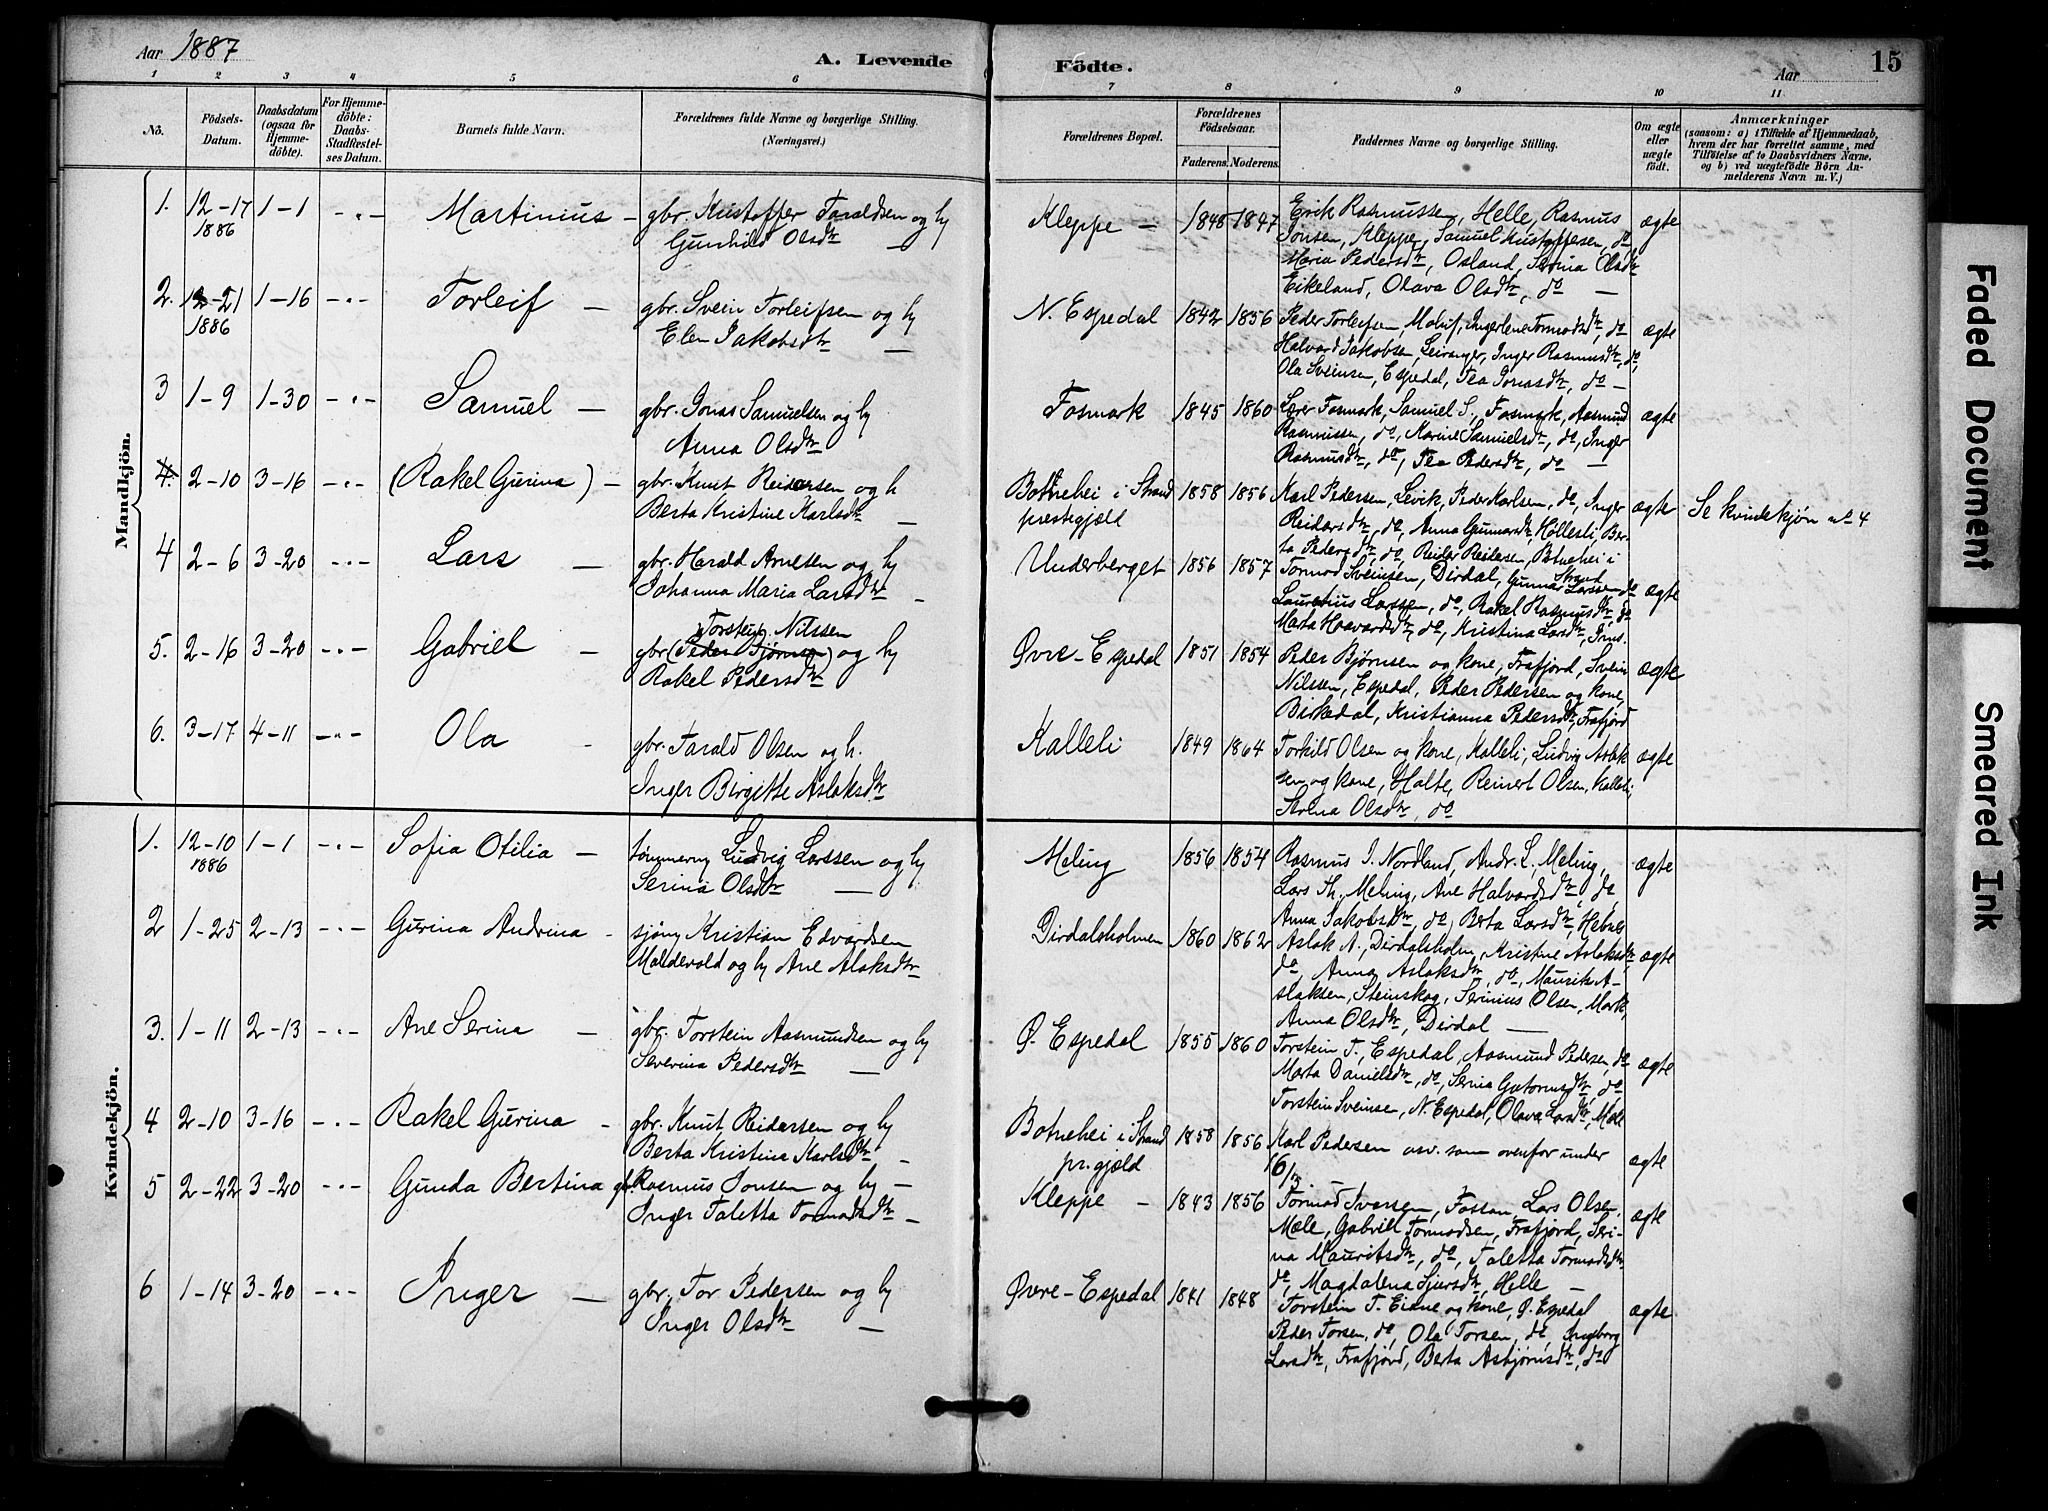 Aar 1887
A. Levende Födte.
Aar
15
1 2 3 4 5 6 7 8 9 10 11
Nö.
Födsels-Datum.
Daabsdatum (ogsaa for Hjemme-döbte).
For Hjemme-döbte: Daabs-Stadfæstel-ses Datum.
Barnets fulde Navn.
Forældrenes fulde Navne og borgerlige Stilling.
(Næringsvei.)
Forældrenes Bopæl.
Forældrenes Födselsaar.
Faderens. Moderens.
Faddernes Navne og borgerlige Stilling.
Om ægte eller uægte födt.
Anmærkninger
(saasom: a) i Tilfælde af Hjemmedaab, hvem der har forrettet samme, med Tilföielse af to Daabsvidners Navne, og b) ved uægtefödte Börn An-melderens Navn m. V.)
Mandkjön.
1. 12-17 1886 1-1 -"- Martinius - gbr. Kristoffer Taraldsen og hy
Gunhild Olsdtr -
Kleppe - 1848 1847
Erik Rasmussen, Helle, Rasmus
Jonsen, Kleppe, Samuel Kristoffersen, do
Maria Pedersdtr, Osland, Serina Olsdtr
Eikeland, Olava Olsdtr, do -
ægte
2. 12-21 1886 1-16 -"- Torleif - gbr. Svein Torleifsen og hy
Elen Jakobsdtr -
N. Espedal 1842 1856
Peder Torleifsen, Molaug, Ingerlene Tormodsdtr, do
Halvard Jakobsen, Leiranger, Inger Rasmusdtr, do,
Ola Sveinsen, Espedal, Tea Jonasdtr, do -
ægte
3 1-9 1-30 -"- Samuel - gbr. Jonas Samuelsen og hy
Anna Olsdtr
Fosmark 1845 1860
Lærer Fosmark, Samuel S., Fosmark, Aasmund
Rasmussen, do, Karine Samuelsdtr, do, Inger
Rasmusdtr, do, Tea Pedersdtr, do -
ægte
4. 2-10 3-16 -"- (Rakel Gurina) - gbr. Knut Reidarsen og h
Berta Kristine Karlsdtr -
Botnehei i Strand
prestegjæld
1858 1856
Karl Pedersen, Levik, Peder Karlsen, do, Inger
Reidarsdtr, do, Anna Gunnarsdtr, Høllesli, Ber-
ta Pedersdtr, do, Reidar Reidarsen, Botnehei i
Strand
ægte
Se kvindekjøn no 4
4 2-6 3-20 -"- Lars - gbr. Harald Arnesen og hy
Johanna Maria Larsdtr -
Underberget 1856 1857
Tormod Sveinsen, Dirdal, Gunnar Larssen do
Laurentius Larssen, do, Rakel Rasmusdtr, do
Marta Haavardsdtr, do, Kristina Larsdtr,
ægte
5. 2-16 3-20 -"- Gabriel - Torstein Nilssen
gbr (Peder Bjørnsen) og hy
Rakel Pedersdtr
Øvre-Espedal 1851 1854
Peder Bjørnsen og kone, Frafjord, Svein
Nilssen, Espedal, Peder Pedersen og kone,
Birkedal, Kristianna Pedersdtr, Frafjord
ægte
6. 3-17 4-11 -"- Ola - gbr. Tarald Olsen og h.
Inger Birgitte Aslaksdtr
Kalleli 1849 1864
Torkild Olsen og kone, Kalleli, Ludvig Aslak
sen og kone, Halte, Reinert Olsen, Kalleli,
Olsdtr, do
ægte
Kvindekjön.
1. 12-10 1886 1-1 -"- Sofia Otilia - tømmerm Ludvig Larssen og hy
Serina Olsdtr -
Meling 1856 1854
Rasmus J. Nordland, Andr. L. Meling,
Lars Th. Meling, Ane Halvardsdtr, do,
Anna Jakobsdtr, do, Berta Larsdtr,
ægte
2 1-25 2-13 -"- Gurina Andrina - sjøm Kristian Edvardsen
Maldevold og hy Ane Aslaksdtr
Dirdalsholmen 1860 1862
Aslak A., Dirdalsholm, Kristine Aslaksdtr,
do, Anna Aslaksdtr, do, Maurits A-
slaksen, Steinskog, Serinius Olsen, Mark,
Anna Olsdtr, Dirdal -
ægte
3. 1-11 2-13 -"- Ane Serina - gbr. Torstein Aasmundsen og hy
Severina Pedersdtr -
Ø. Espedal 1855 1860
Torstein T., Espedal, Aasmund Pedersen, do
Marta Danielsdtr, do, Serina Gutormsdtr, do
Torstein Sveinse, N. Espedal, Olava Larsdtr, Mæle
ægte
4 2-10 3-16 -"- Rakel Gurina - gbr. Knut Reidarsen og hy
Berta Kristina Karlsdtr -
Botnehei i Strand
pr.gjæld
1858 1856
Karl Pedersen osv. som ovenfor under
16/3
ægte
5 2-22 3-20 -"- Gunda Bertina gbr. Rasmus Jonsen og hy -
Inger Taletta Tormodsdtr -
Kleppe - 1843 1856
Tormod Ivarsen, Fossan, Lars Olsen,
Mæle, Gabriel Tormodsen, Frafjord, Seri-
na Mauritsdtr, do, Taletta Tormodsdtr
do, Magdalena Sjursdtr, Helle -
ægte
6 1-14 3-20 -"- Inger - gbr. Tor Pedersen og hy
Inger Olsdtr -
Øvre-Espedal 1841 1848
Torstein T. Eiane og kone, Ø. Espedal
Peder Torsen, do, Ola Torsen, do, Ingeborg
Larsdtr, Frafjord, Berta Asbjørnsdtr, do
ægte
Faded Document
Smeared Ink